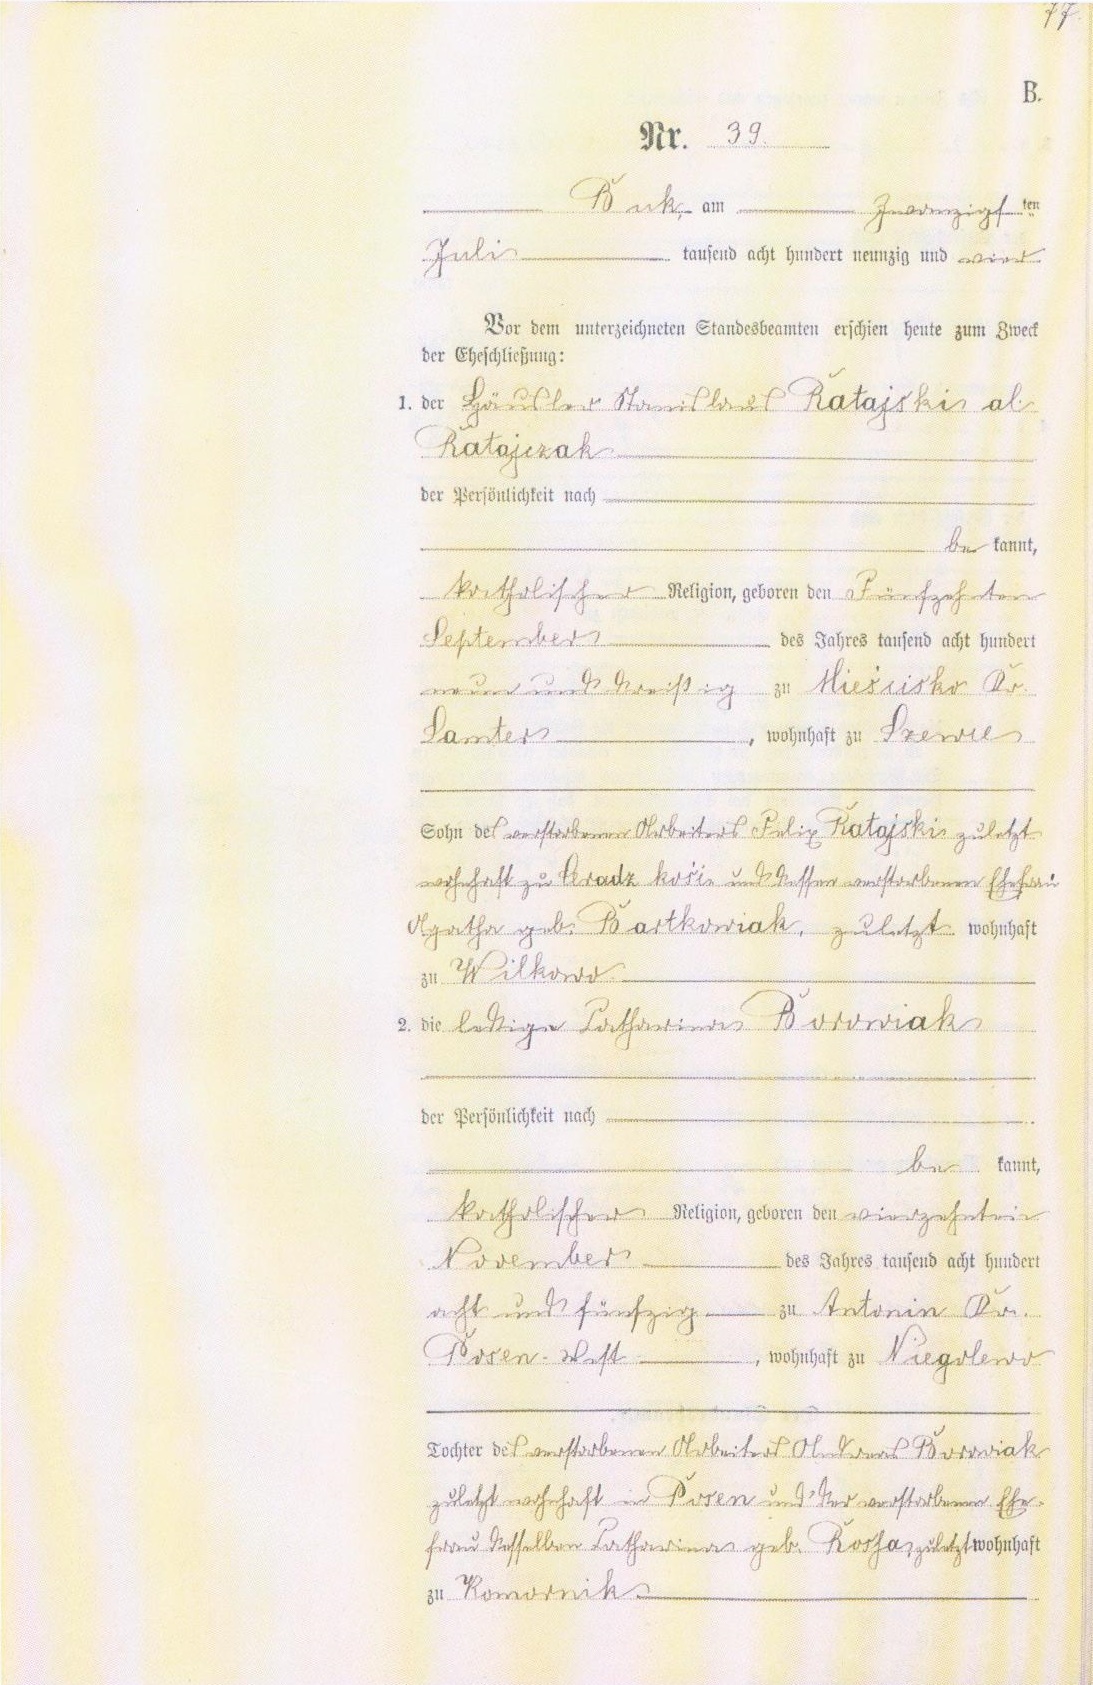 77.
B.
Nr. 39.
Buk, am Zwanzigsten
Juli tausend acht hundert neunzig und vier
Vor dem unterzeichneten Standesbeamten erschien heute zum Zweck
der Eheschließung:
1. der Häusler Stanislaus Ratajski al.
Ratajczak
der Persönlichkeit nach
be kannt,
katholischer Religion, geboren den Fünfzehnten
September des Jahres tausend acht hundert
neun und dreißig zu Mieścisko Kr.
Samter, wohnhaft zu Szewce
Sohn des verstorbenen Arbeiters Felix Ratajski zuletzt
wohnhaft zu und dessen verstorbenen Ehefrau
Agatha geb. Bartkowiak, zuletzt wohnhaft
zu Wilkowo
2. die ledige Catharina Borowiak
der Persönlichkeit nach
be kannt,
katholischer Religion, geboren den vierzehnten
November des Jahres tausend acht hundert
acht und fünfzig zu Antonin Kr.
Posen-West, wohnhaft zu Niegolewo
Tochter des verstorbenen Arbeiters Andreas Borowiak
zuletzt wohnhaft in Posen und der verstorbenen Ehe-
frau desselben Catharina geb. zuletzt wohnhaft
zu Komornik